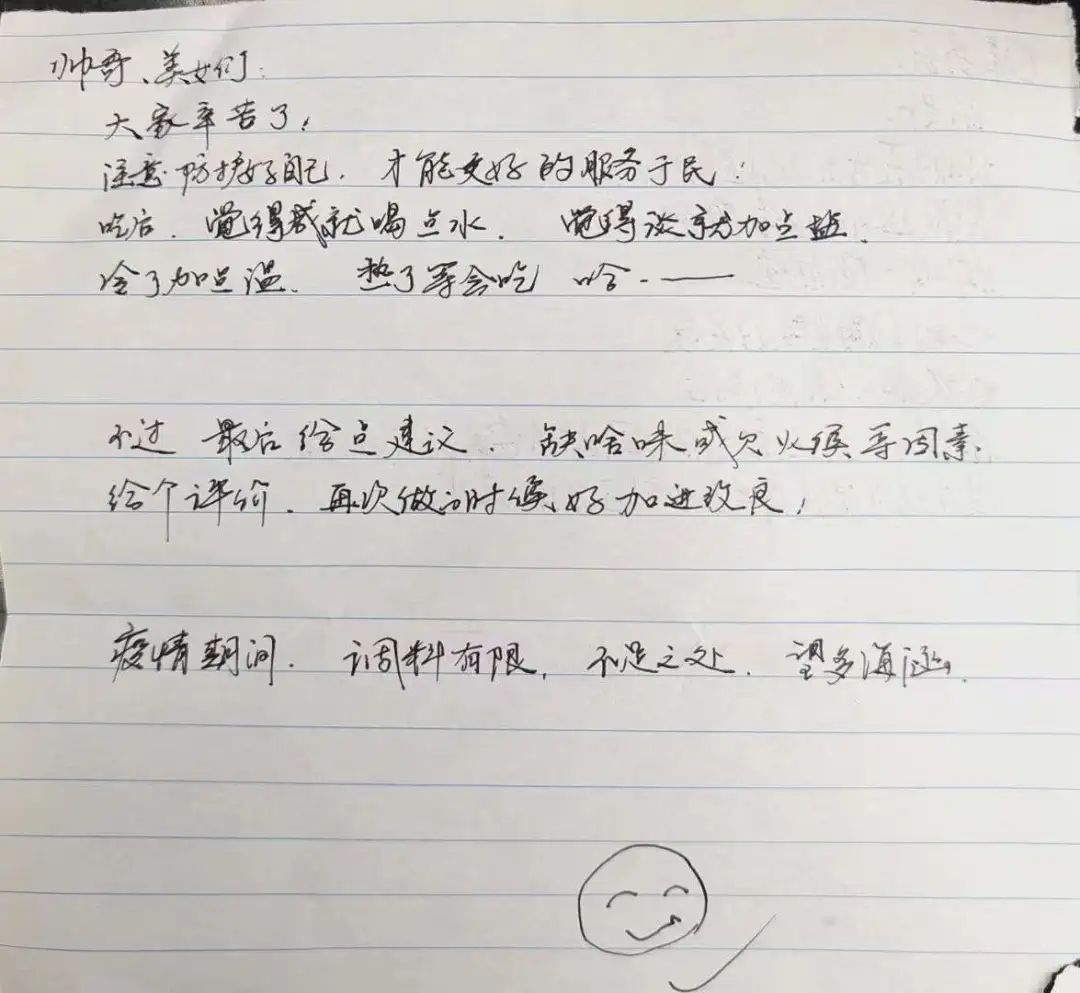 帅哥、美女们:
大家辛苦了!
注意防护好自己. 才能更好的服务于民!
吃后. 觉得咸就喝点水. 觉得淡就加点盐.
冷了加点温. 热了等会吃 哈.——
不过 最后给点建议. 缺啥味或欠火候等因素.
给个评价. 再次做的时候, 好加进改良!
疫情期间. 调料有限, 不足之处. 望多海涵.